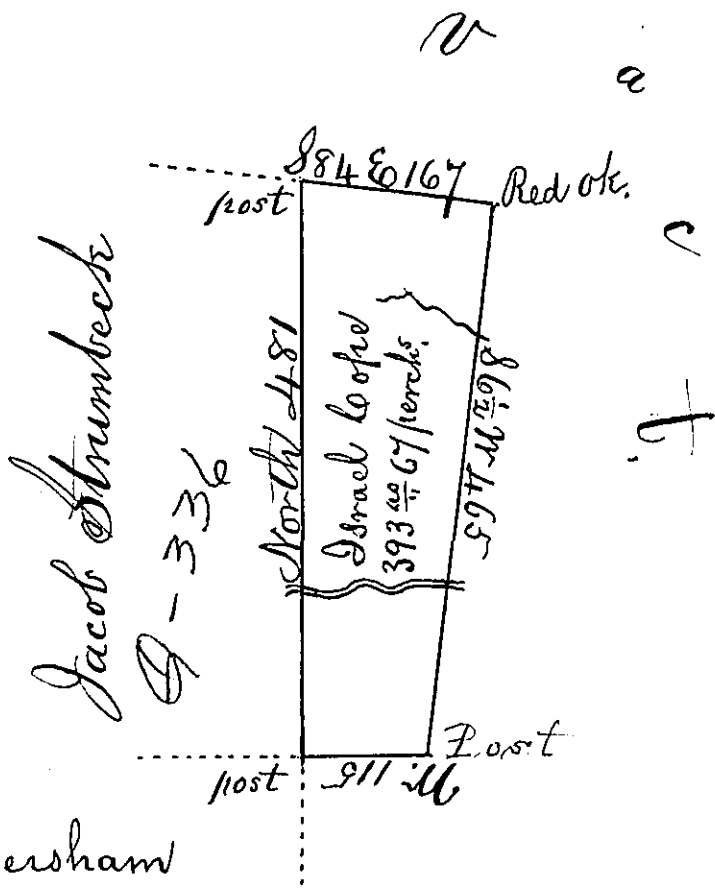 v
a
c
t
S 84 E 167
post
Red ok.
Jacob Strumbeck
D-336
North 481
Israel Cope
393 as 67 perchs.
W 465
Post
post
W. 115
ersham